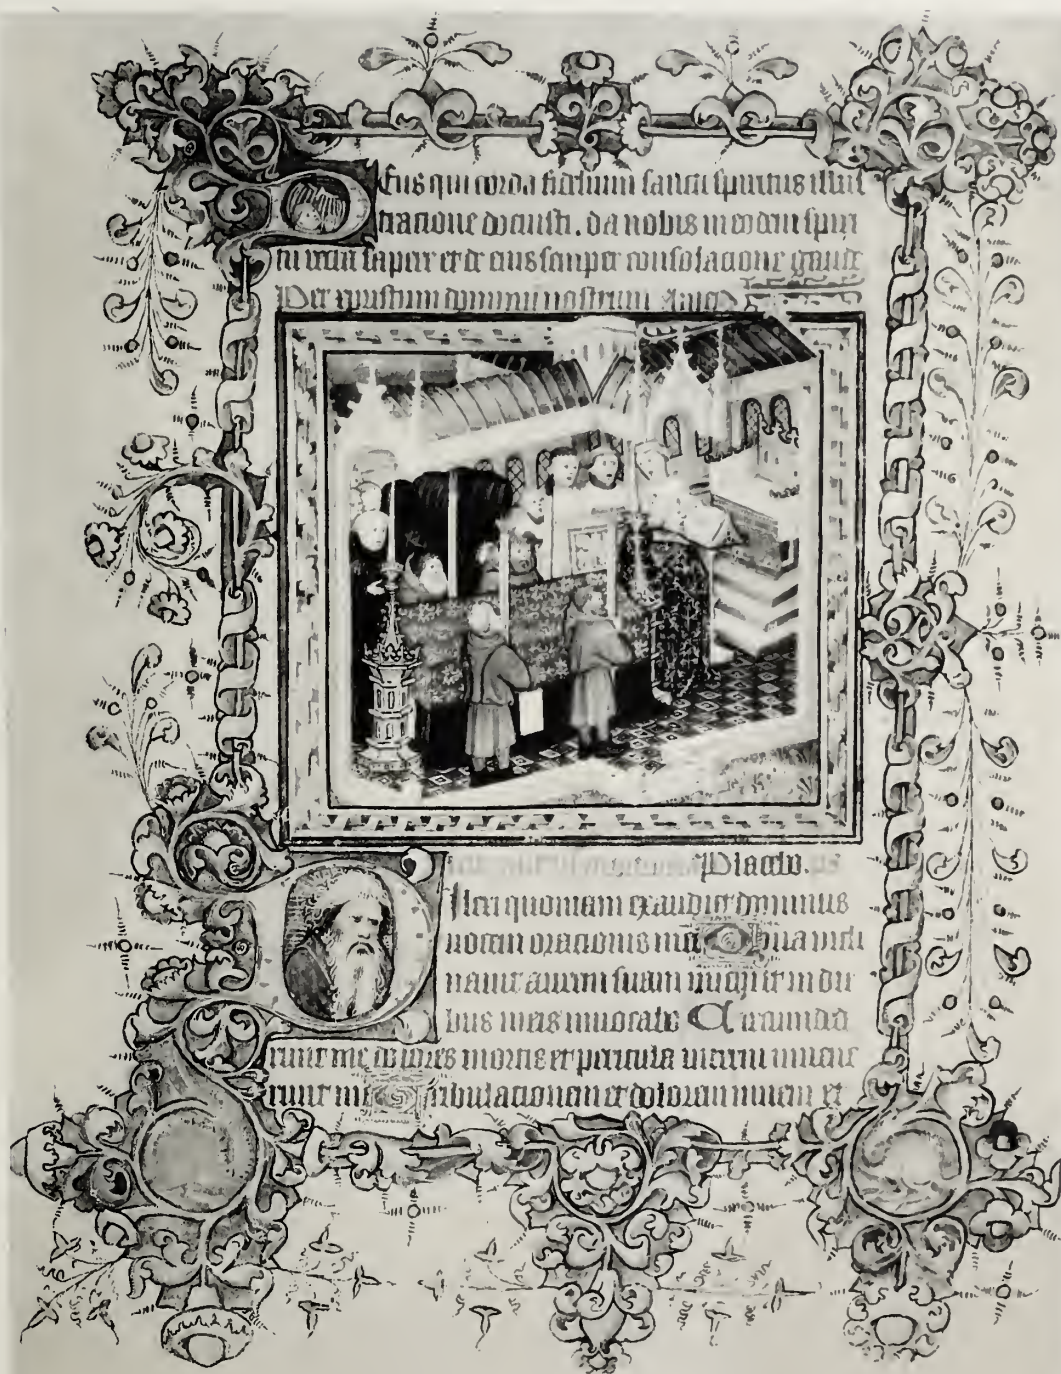 Deus qui corda fidelium sancti spiritus illus
tracione docuisti. da nobis in eodem spiri
tu recta sapere et de eius semper consolacione gaudere
Per cristum dominum nostrum Amen
Placebo.
Dilexi quoniam exaudiet dominus
vocem oracionis mee Quia incli
nauit aurem suam michi et in die
bus meis inuocabo Circumded
runt me dolores mortis et pericula inferni inuene
runt me Tribulacionem et dolorem inueni et